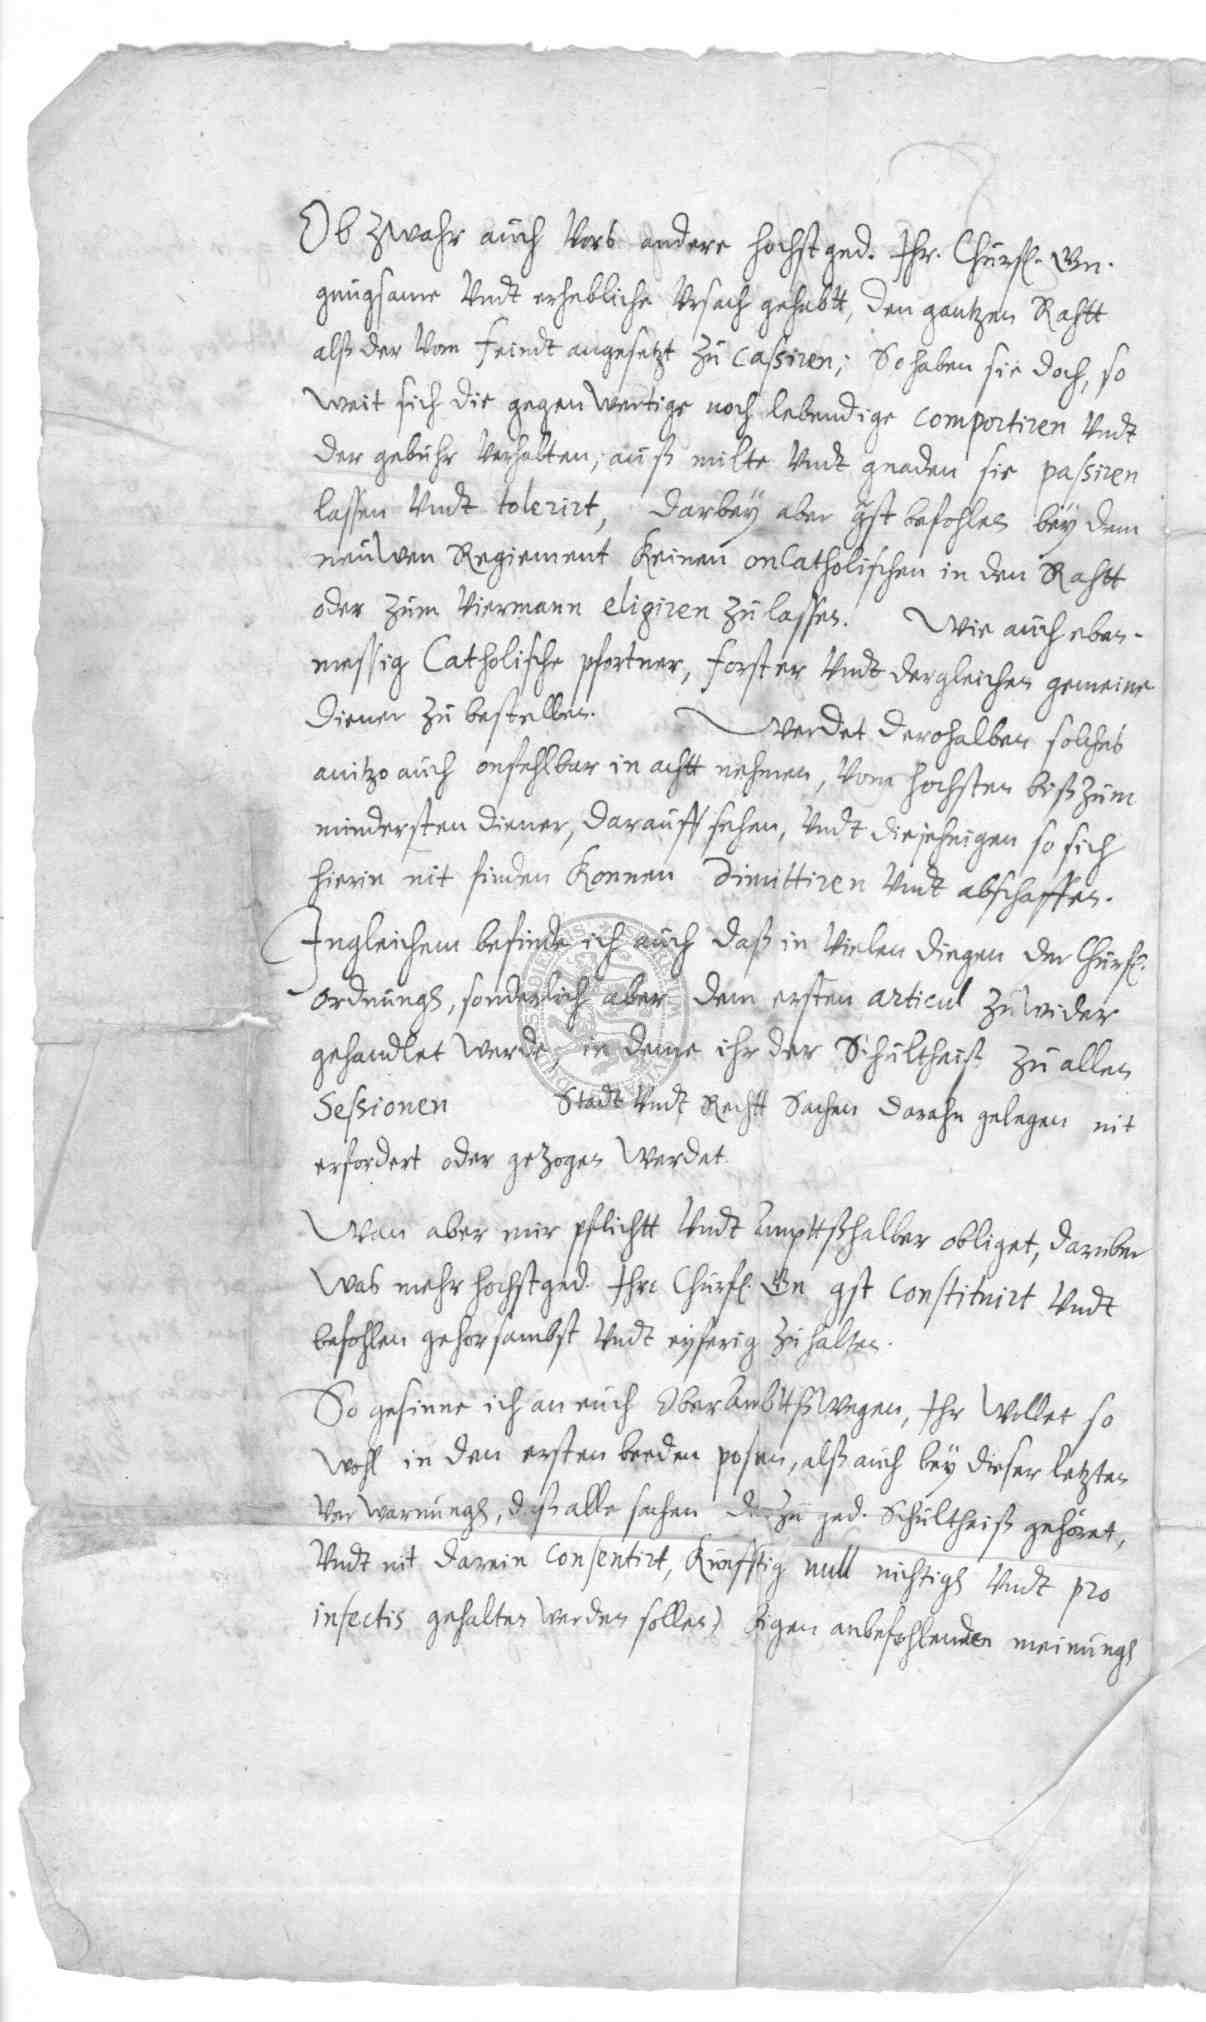 Ob zwahr auch Vors andere hochstged. Ihr. Churfl. Gn.
gnugsame Vndt erhebliche Vrsach gehabtt, den gantzen Rahtt
alß der Vom feindt angesetzt zu cassiren; So haben sie doch, so
weit sich die gegenwertige noch lebendige comportiren Vndt
der gebuhr Verhalten, auß milte Vndt gnaden sie passiren
lassen Vndt tolerirt, darbey aber gst befohlen bey dem
neuwen Regiement Keinen onCatholischen in den Rahtt
oder zum Viermann eligiren zu lassen. Wie auch eben-
messig Catholische pfortner, forster Vndt dergleichen gemeine
Diener zu bestellen. Werdet derohalben solches
anitzo auch onfehlbar in achtt nehmen, Vom hochsten biß zum
mindersten diener, darauff sehen, Vndt diejehnigen so sich
hierin nit finden Konnen dimittiren Vndt abschaffen.
Ingleichem befinde ich auch daß in Vielen dingen der Churfl.
ordnungh, sonderlich aber dem ersten articul zuwider
gehandlet werde, in deme ihr der Schultheiß zu allen
Sessionen Stadt Vndt Rechtt Sachen darahn gelegen nit
erfordert oder gezogen werdet.
Wan aber mir pflichtt Vndt Ampttßhalber obliget, daruber
was mehrhochstged. Ihre Churfl. Gn gst constituirt Vndt
befohlen gehorsambst Vndt eyferig zu halten.
So gesinne ich an euch OberAmbttßwegen, Ihr wollet so
wohl in den ersten beeden posen, alß auch bey dieser letzten
Verwarnungh, daß alle sachen dazu ged. Schultheiß gehöret,
Vndt nit darein consentirt, Kunfftig null nichtigh Vndt pro
infectis gehalten werden sollen) anbefohlenden meinungh